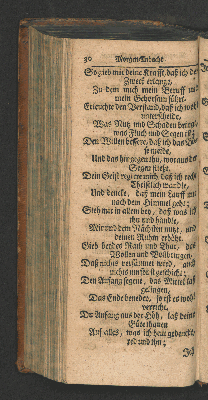 30 Morgen-Andacht
So gieb mir deine Krafft, daß ich den
Zweck erlange,
Zu dem mich mein Beruff und
mein Gehorsam führt.
Erleuchte den Verstand, daß ich wohl
unterscheide,
Was Nutz und Schaden bringt,
was Fluch und Segen ist;
Den Willen bessere, daß ich das
meide,
Und das hingegen thu, woraus der
Segen fließt.
Dein Geist regiere mich daß ich recht
Christlich wandle,
Und dencke, daß mein Lauff
nach dem Himmel geht;
Steh mir in allem bey, daß was ich
thu und handle,
Mir und dem Nächsten nutzt, und
deinen Ruhm erhöht.
Gieb beydes Rath und That, das
Wollen und Vollbringen,
Daß nichts versäumet werd, und
nichts umsonst geschicht;
Den Anfang segene, das Mittel laß
gelingen,
Das Ende benedey, so ist es wohl
verricht.
Du Anfang aus der Höh, laß deine
Güte thauen
Auf alles, was ich heut gedencke
red und thu;